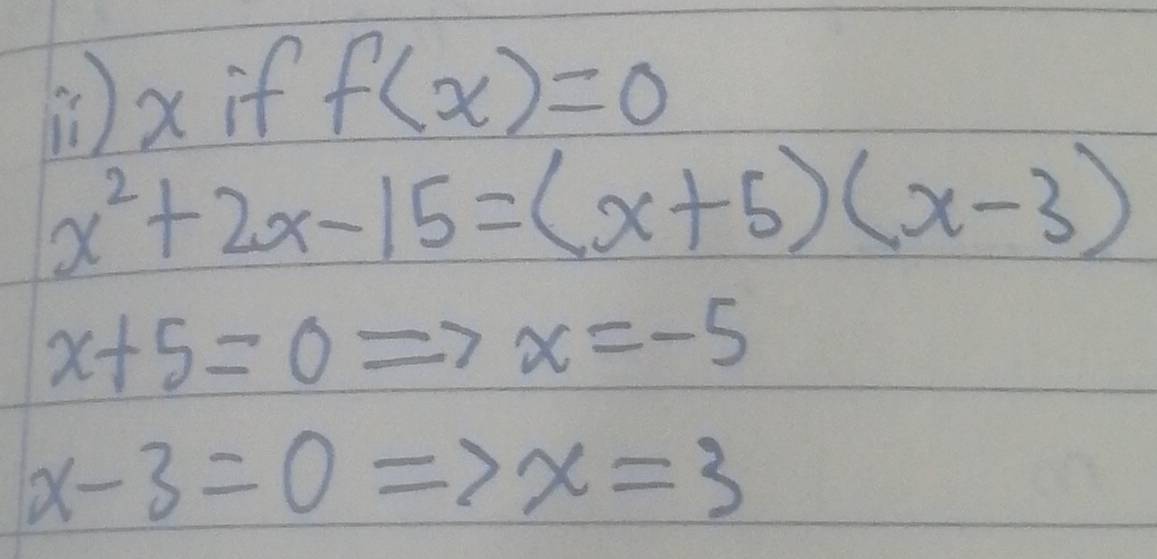 ii) x if f(x)=0
x²+2x-15=(x+5)(x-3)
x+5=0=>x=-5
x-3=0=>x=3